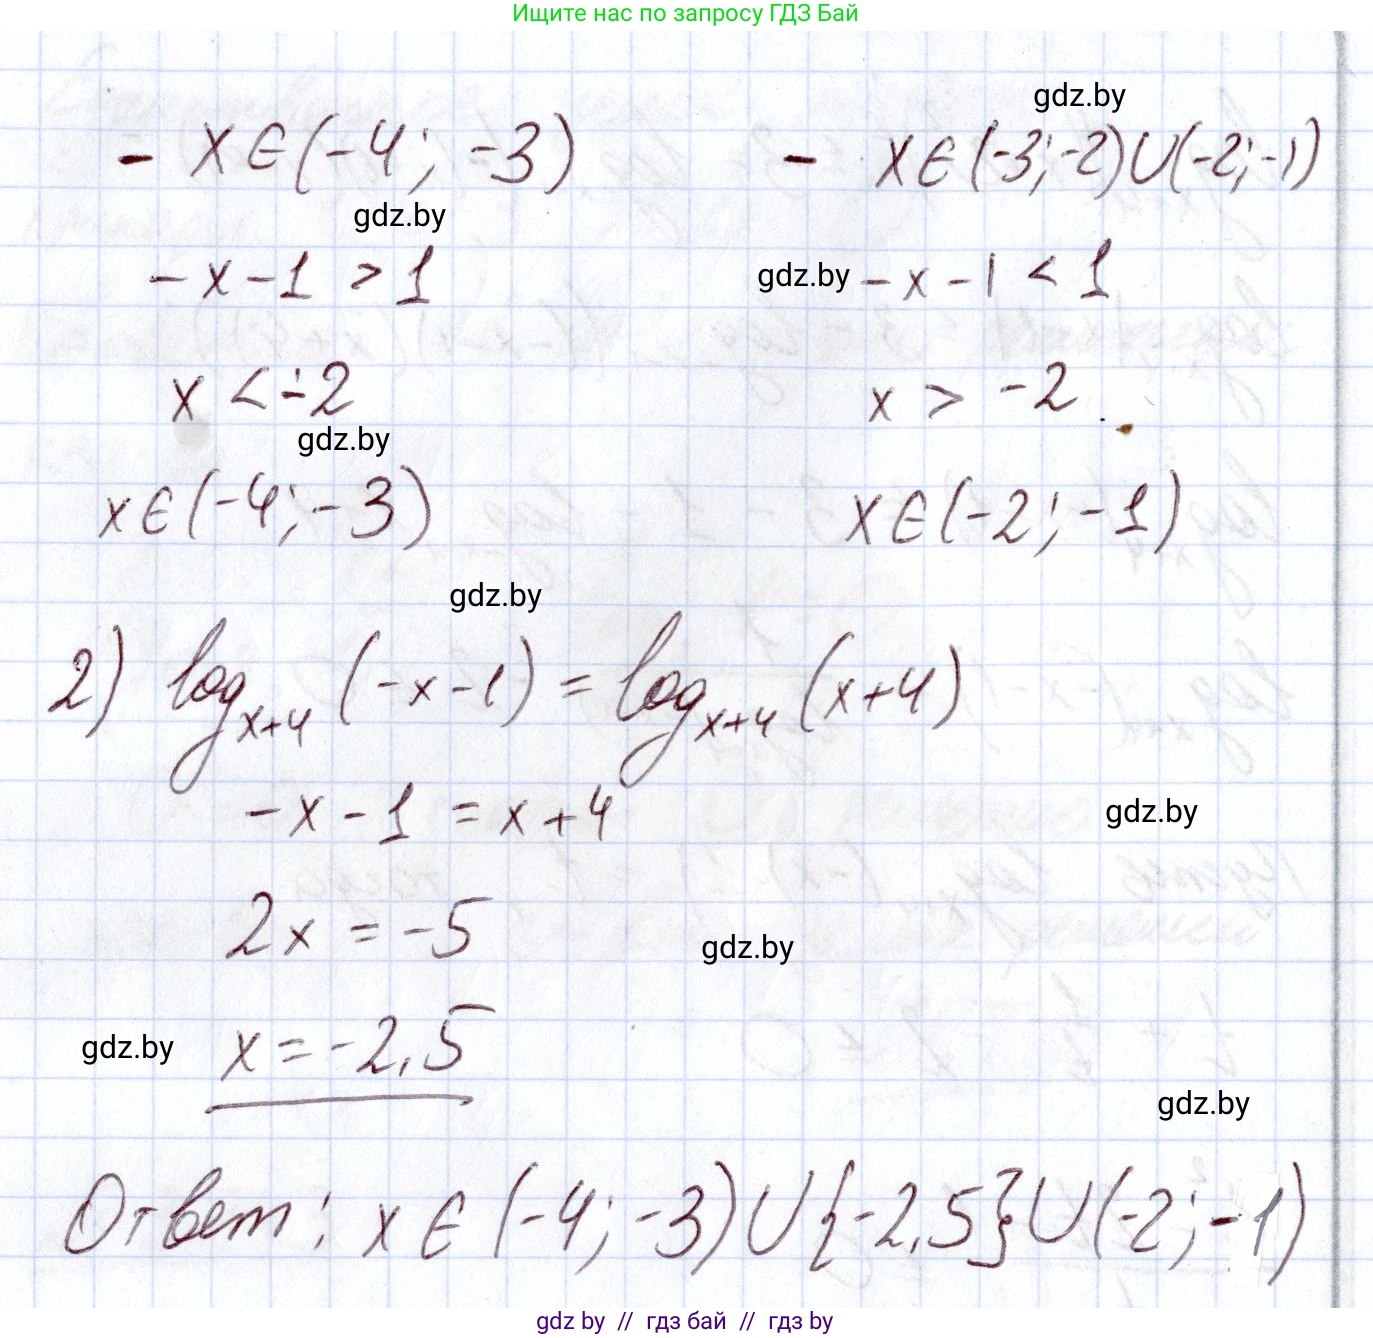 Ищите нас по запросу ГДЗ Бай
gdz.by
- x∈(-4; -3)
- x∈(-3; -2)∪(-2; -1)
gdz.by
-x-1 > 1
gdz.by
-x-1 < 1
x < -2
x > -2
gdz.by
x∈(-4; -3)
x∈(-2; -1)
gdz.by
2) log_{x+4} (-x-1) = log_{x+4} (x+4)
-x-1 = x+4
gdz.by
2x = -5
gdz.by
gdz.by
x = -2,5
gdz.by
Ответ: x∈(-4; -3)∪{-2,5}∪(-2; -1)
gdz by // гдз бай // гдз by